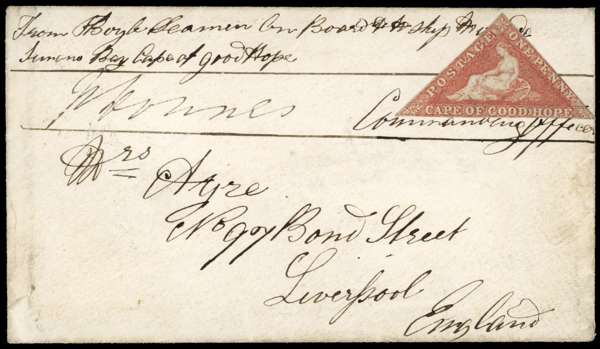 From Boyle Seamen On Board H M ship
Simons Bay Cape of good Hope
POSTAGE ONE PENNY
CAPE OF GOOD HOPE
Commanding Officer
Mrs Ayre
No 97 Bond Street
Liverpool
England